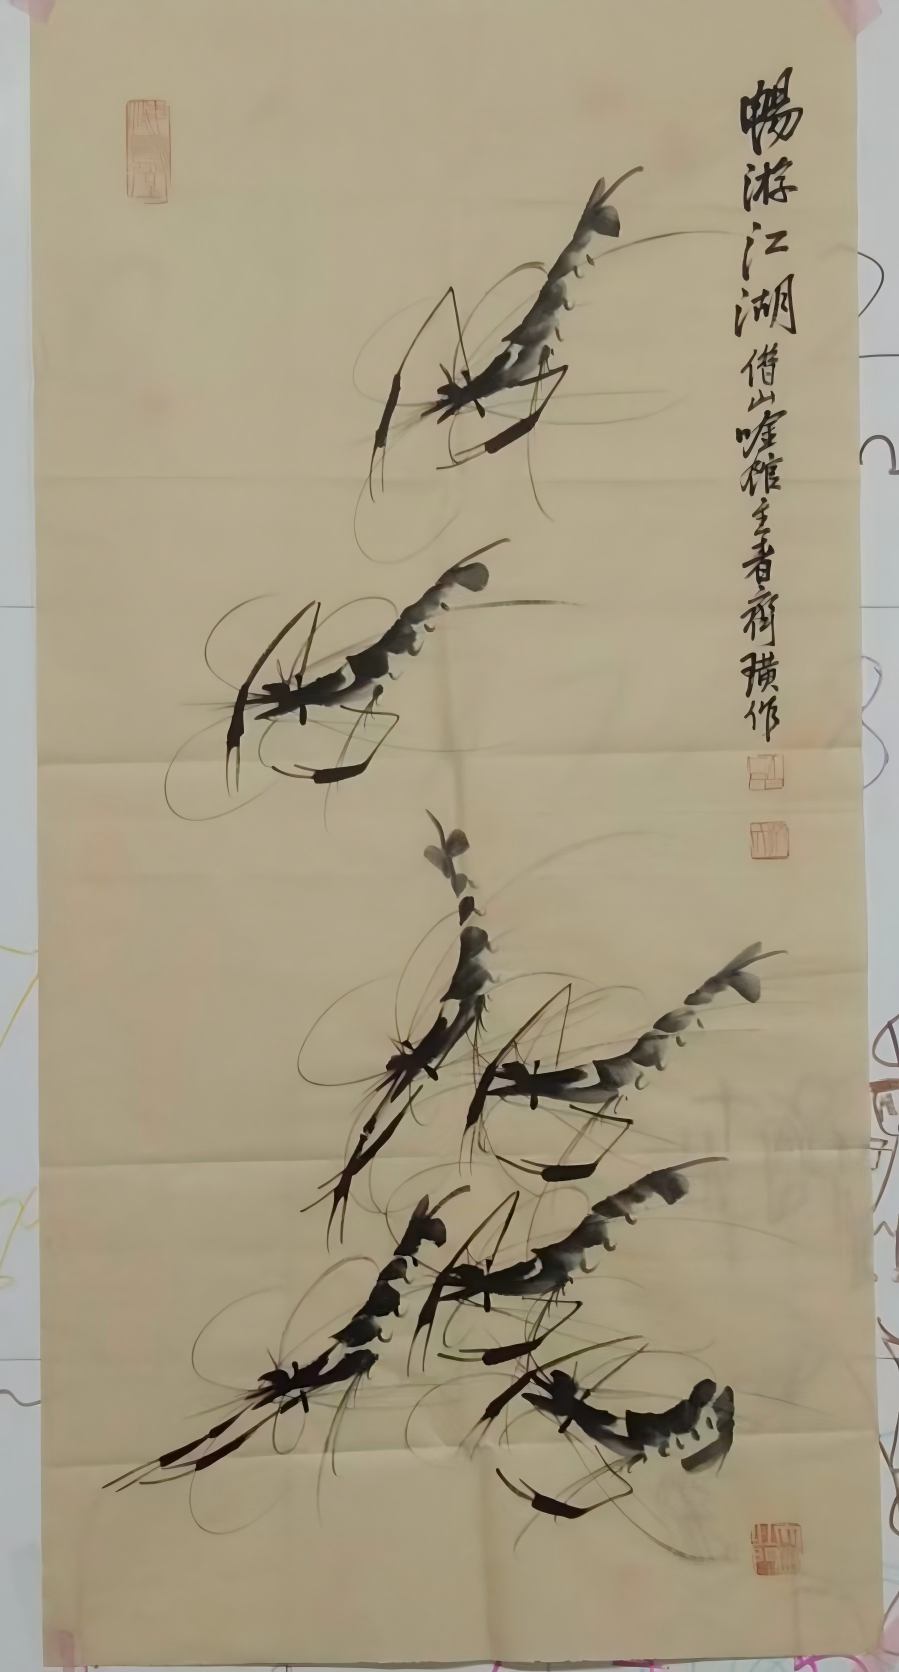 暢游江湖借山唫館主者齊璜作